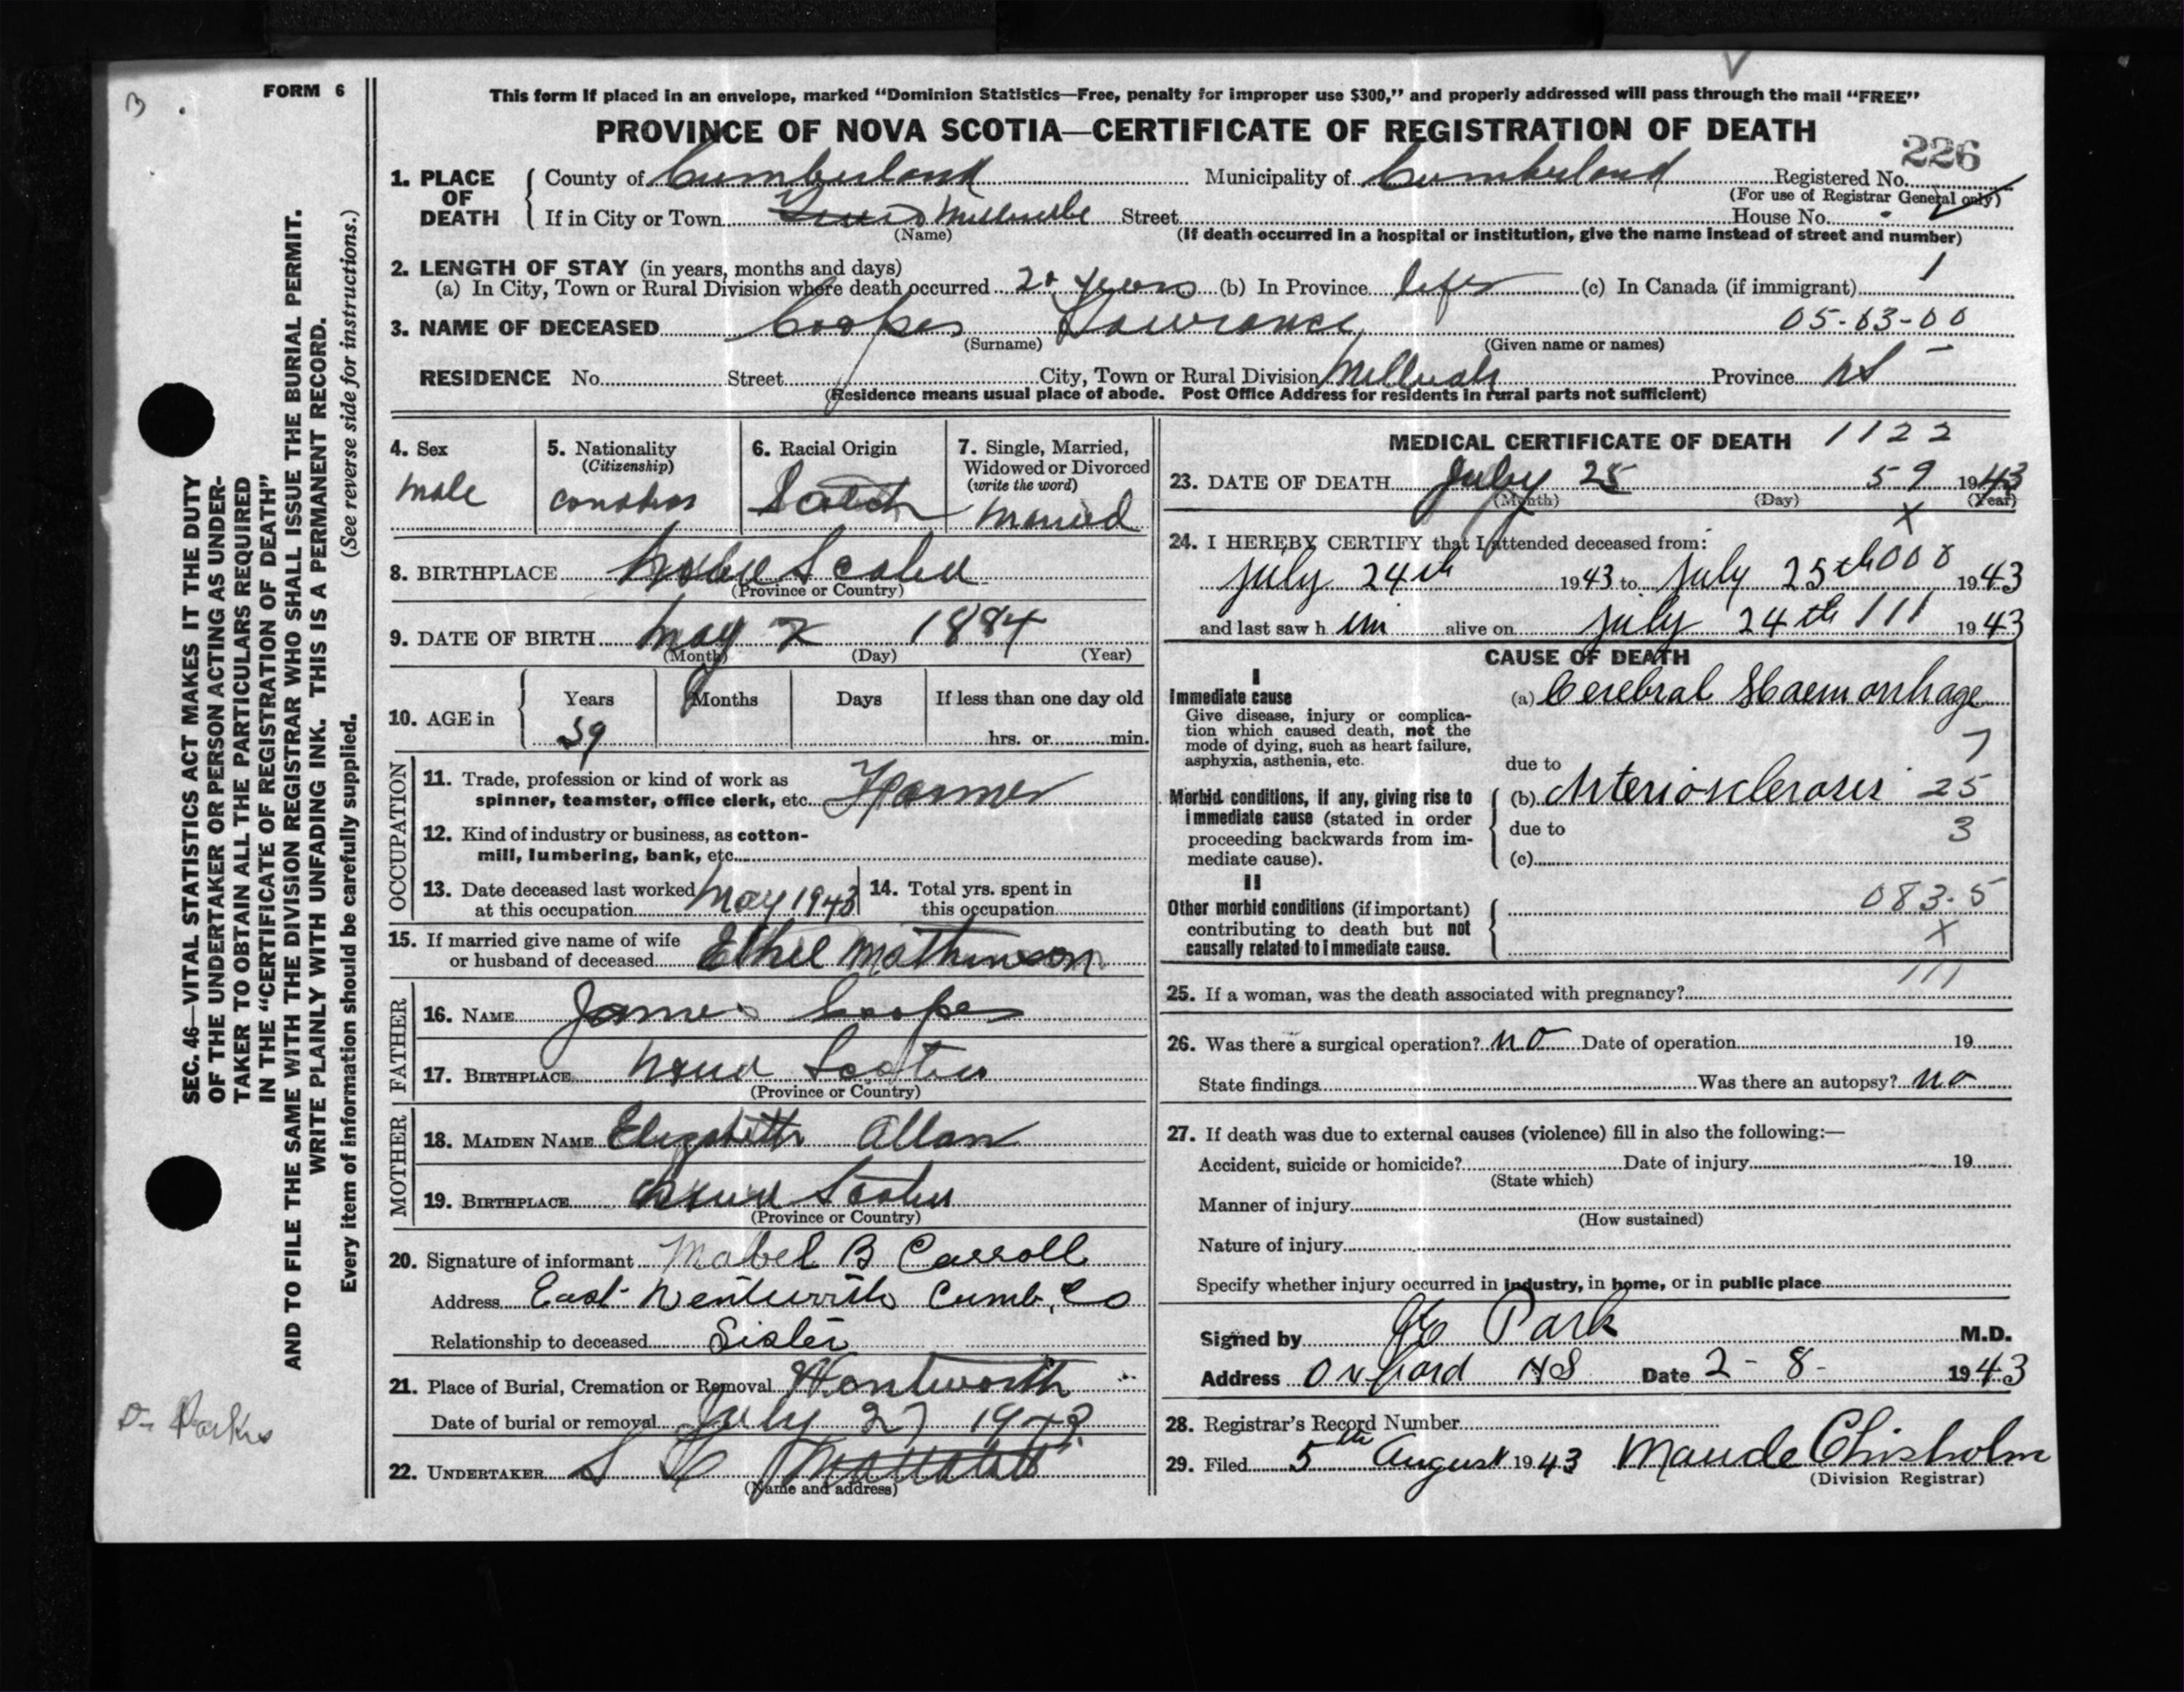 FORM 6
This form if placed in an envelope, marked “Dominion Statistics—Free, penalty for improper use $300,” and properly addressed will pass through the mail “FREE”
PROVINCE OF NOVA SCOTIA—CERTIFICATE OF REGISTRATION OF DEATH
226
1. PLACE OF DEATH
County of Cumberland Municipality of Cumberland Registered No.
(For use of Registrar General only)
If in City or Town Street House No.
(Name) (If death occurred in a hospital or institution, give the name instead of street and number)
2. LENGTH OF STAY (in years, months and days)
(a) In City, Town or Rural Division where death occurred 20 years (b) In Province life (c) In Canada (if immigrant) 1
3. NAME OF DECEASED Cooper Lawrance 05-63-00
(Surname) (Given name or names)
RESIDENCE No. Street City, Town or Rural Division Province NS
(Residence means usual place of abode. Post Office Address for residents in rural parts not sufficient)
4. Sex
male
5. Nationality
(Citizenship)
6. Racial Origin
Scotch
7. Single, Married,
Widowed or Divorced
(write the word)
Married
8. BIRTHPLACE Nova Scotia
(Province or Country)
9. DATE OF BIRTH May 2 1884
(Month) (Day) (Year)
10. AGE in
Years Months Days If less than one day old
59 hrs. or min.
OCCUPATION
11. Trade, profession or kind of work as
spinner, teamster, office clerk, etc. Farmer
12. Kind of industry or business, as cotton-
mill, lumbering, bank, etc.
13. Date deceased last worked
at this occupation May 1943
14. Total yrs. spent in
this occupation
15. If married give name of wife
or husband of deceased Ethel
FATHER
16. NAME James Cooper
17. BIRTHPLACE Nova Scotia
(Province or Country)
MOTHER
18. MAIDEN NAME Elizabeth Allan
19. BIRTHPLACE Nova Scotia
(Province or Country)
20. Signature of informant Mabel B Carroll
Address East Wentworth Cumb. Co
Relationship to deceased Sister
21. Place of Burial, Cremation or Removal Wentworth
Date of burial or removal July 27 1943
22. UNDERTAKER
(Name and address)
MEDICAL CERTIFICATE OF DEATH 1122
23. DATE OF DEATH July 25 59 1943
(Month) (Day) (Year)
X
24. I HEREBY CERTIFY that I attended deceased from:
July 24th 1943 to July 25th 000 1943
and last saw h im alive on July 24th 111 1943
CAUSE OF DEATH
I
Immediate cause
Give disease, injury or complica-
tion which caused death, not the
mode of dying, such as heart failure,
asphyxia, asthenia, etc.
(a) Cerebral Haemorrhage
7
due to
Morbid conditions, if any, giving rise to
immediate cause (stated in order
proceeding backwards from im-
mediate cause).
(b) Arteriosclerosis 25
due to 3
(c)
II
Other morbid conditions (if important)
contributing to death but not
causally related to immediate cause.
083-5
X
111
25. If a woman, was the death associated with pregnancy?
26. Was there a surgical operation? no Date of operation 19
State findings Was there an autopsy? no
27. If death was due to external causes (violence) fill in also the following:—
Accident, suicide or homicide? Date of injury 19
(State which)
Manner of injury
(How sustained)
Nature of injury
Specify whether injury occurred in industry, in home, or in public place
Signed by Park M.D.
Address Oxford NS Date 2-8- 1943
28. Registrar's Record Number
29. Filed 5th August 1943 Maude Chisholm
(Division Registrar)
SEC. 46—VITAL STATISTICS ACT MAKES IT THE DUTY
OF THE UNDERTAKER OR PERSON ACTING AS UNDER-
TAKER TO OBTAIN ALL THE PARTICULARS REQUIRED
IN THE “CERTIFICATE OF REGISTRATION OF DEATH”
AND TO FILE THE SAME WITH THE DIVISION REGISTRAR WHO SHALL ISSUE THE BURIAL PERMIT.
WRITE PLAINLY WITH UNFADING INK. THIS IS A PERMANENT RECORD.
Every item of information should be carefully supplied. (See reverse side for instructions.)